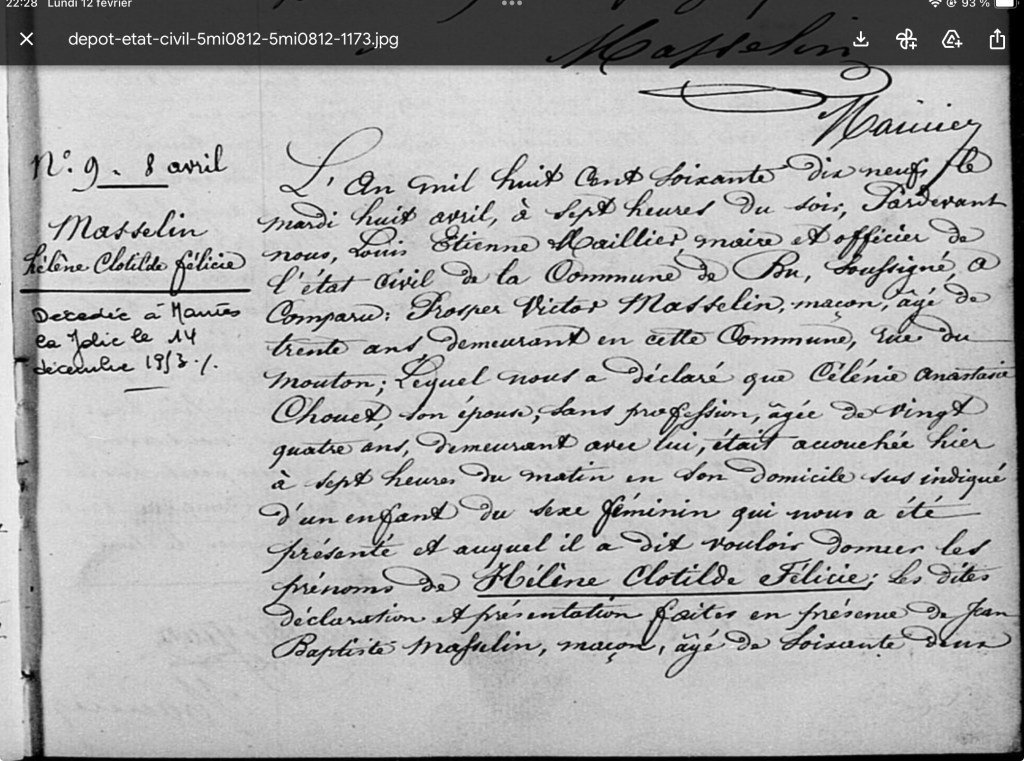 22:28 Lundi 12 février
93 %
depot-etat-civil-5mi0812-5mi0812-1173.jpg
Masselin
N° 9. 8 avril
Masselin
hélène Clotilde félicie
Décédée à Mantes
la Jolie le 14
décembre 1953 ./.
L'An mil huit Cent soixante dix neuf, le
mardi huit avril, à sept heures du soir, Pardevant
nous, Louis Etienne Maillier, maire et officier de
l'état civil de la Commune de Bu, soussigné, a
Comparu: Prosper Victor Masselin, maçon, âgé de
trente ans, demeurant en cette Commune, rue du
mouton; Lequel nous a déclaré que Célénie Anastasie
Chouet, son épouse, sans profession, âgée de vingt
quatre ans, demeurant avec lui, était accouchée hier
à sept heures du matin en son domicile sus indiqué
d'un enfant du sexe féminin qui nous a été
présenté et auquel il a dit vouloir donner les
prénoms de Hélène Clotilde Félicie; Les dites
déclaration et présentation faites en présence de Jean
Baptiste Masselin, maçon, âgé de soixante deux